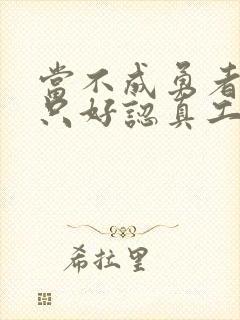 當不成勇者
只好認真工
希拉里